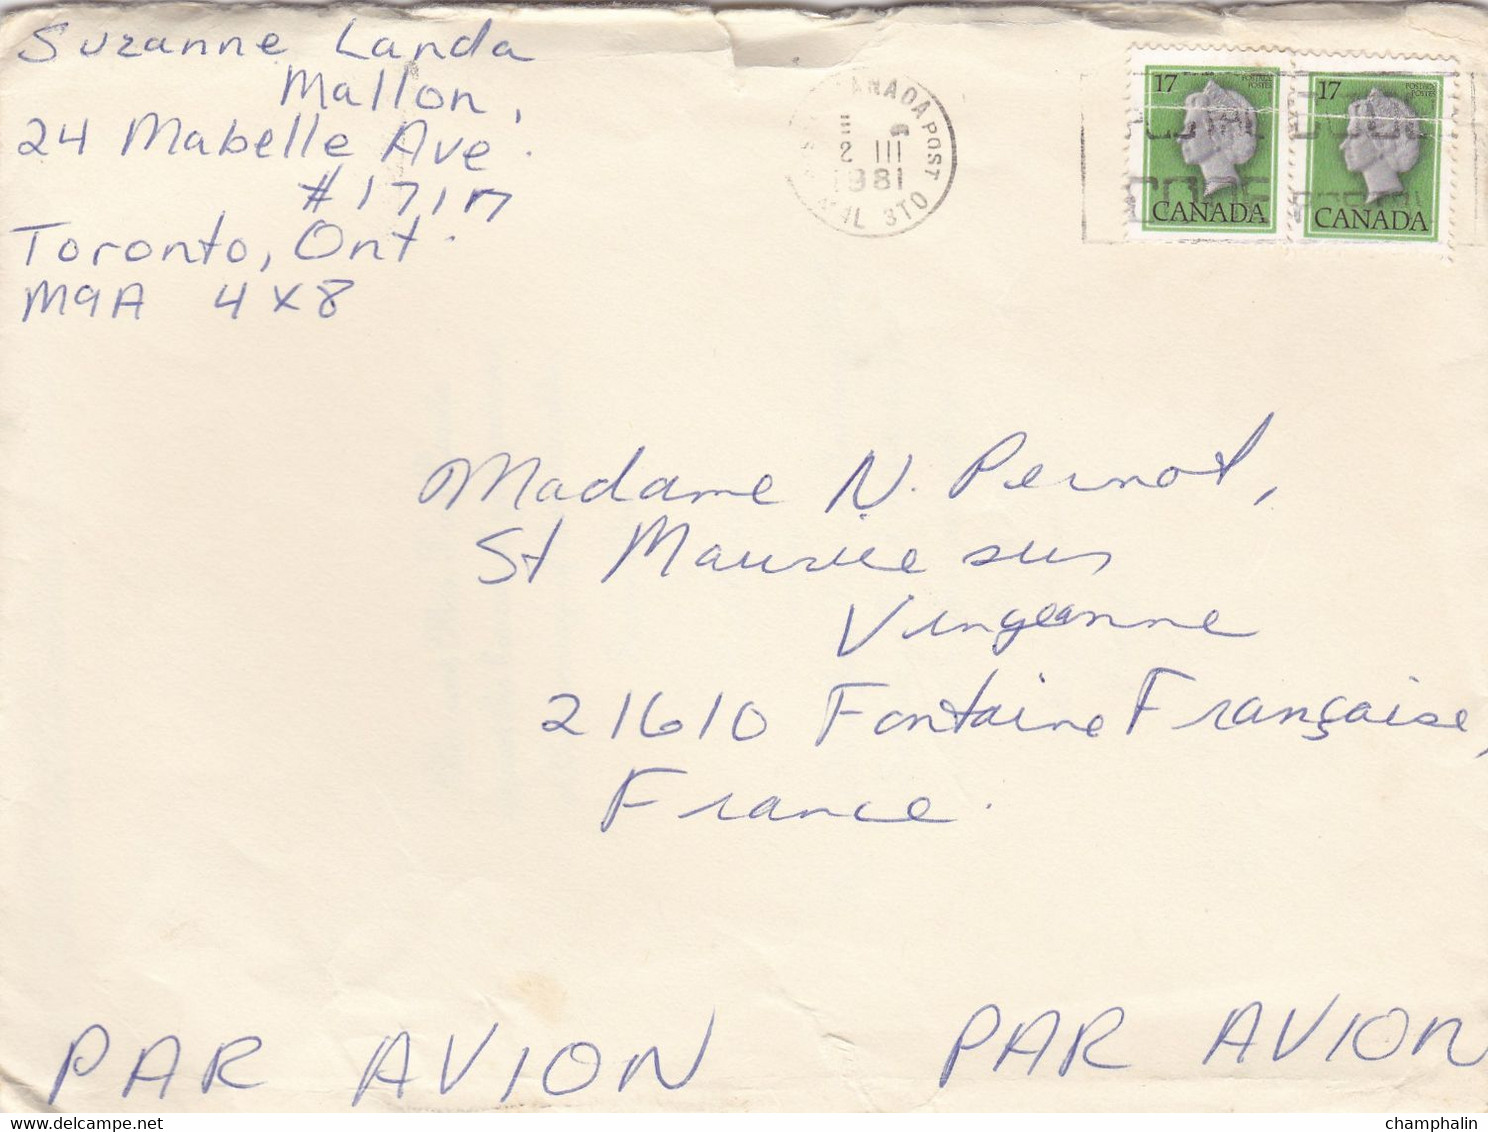 Suzanne Landa
Mallon,
24 Mabelle Ave.
#1717
Toronto, Ont.
M9A 4X8
CANADA POST
2 III
1981
M4L 3T0
17
POSTAGE
POSTES
CANADA
17
POSTAGE
POSTES
CANADA
POSTAL CODE
CODE POSTAL
Madame N. Pernot,
St Maurice sur
Vingeanne
21610 Fontaine Française,
France.
PAR AVION
PAR AVION
champhalin